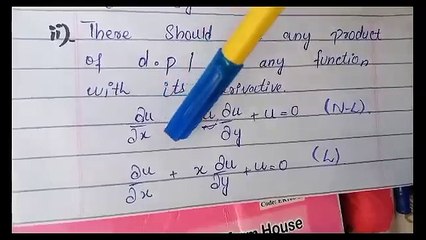 ii) There Should any product
of d.p/ any function
with its derivative
∂u/∂x u ∂u/∂y + u = 0 (N-L)
∂u/∂x + x ∂u/∂y + u = 0 (L)
Code:
House